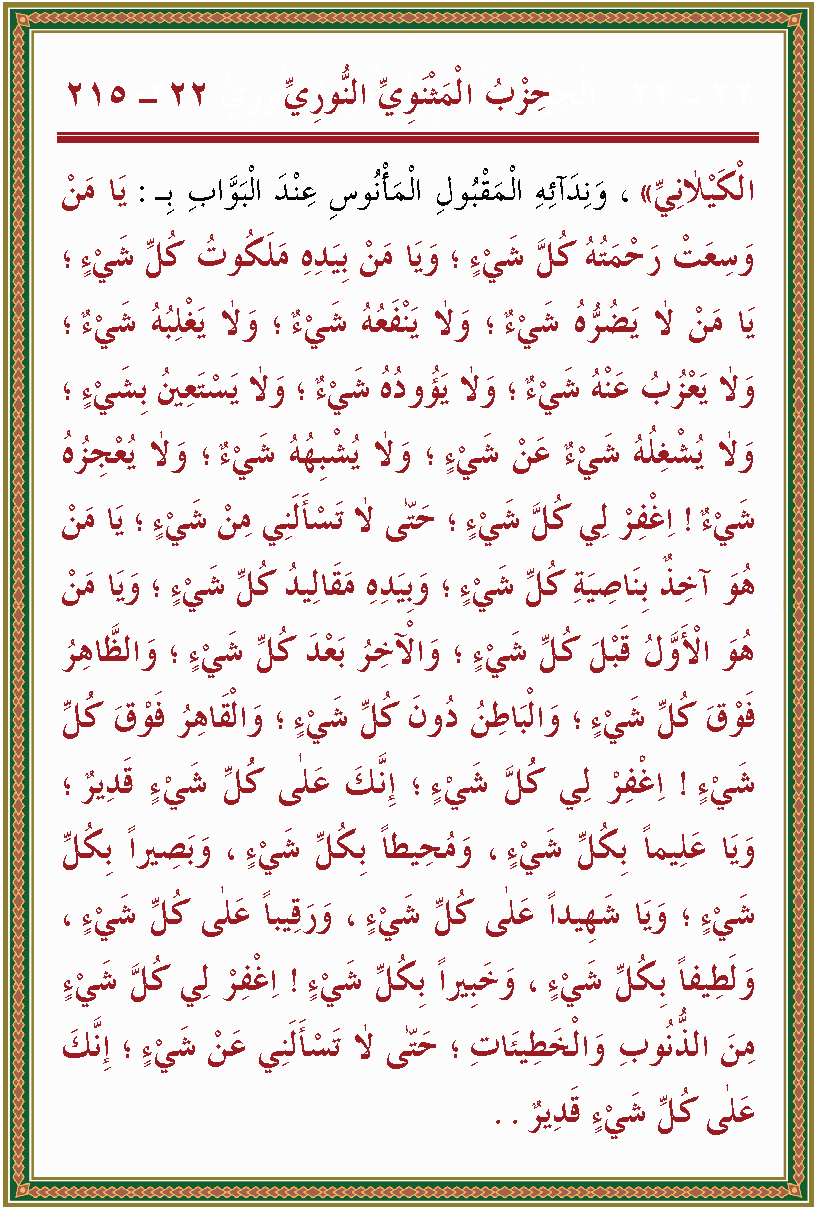 حِزْبُ الْمَثْنَوِيِّ النُّورِيِّ ٢٢ ــ ٢١٥
الْكَيْلَانِيِّ» ، وَنِدَآئِهِ الْمَقْبُولِ الْمَأْنُوسِ عِنْدَ الْبَوَّابِ بِـ : يَا مَنْ
وَسِعَتْ رَحْمَتُهُ كُلَّ شَيْءٍ ؛ وَيَا مَنْ بِيَدِهِ مَلَكُوتُ كُلِّ شَيْءٍ ؛
يَا مَنْ لَا يَضُرُّهُ شَيْءٌ ؛ وَلَا يَنْفَعُهُ شَيْءٌ ؛ وَلَا يَغْلِبُهُ شَيْءٌ ؛
وَلَا يَعْزُبُ عَنْهُ شَيْءٌ ؛ وَلَا يَؤُودُهُ شَيْءٌ ؛ وَلَا يَسْتَعِينُ بِشَيْءٍ ؛
وَلَا يُشْغِلُهُ شَيْءٌ عَنْ شَيْءٍ ؛ وَلَا يُشْبِهُهُ شَيْءٌ ؛ وَلَا يُعْجِزُهُ
شَيْءٌ ! اِغْفِرْ لِي كُلَّ شَيْءٍ ؛ حَتّٰى لَا تَسْأَلَنِي مِنْ شَيْءٍ ؛ يَا مَنْ
هُوَ آخِذٌ بِنَاصِيَةِ كُلِّ شَيْءٍ ؛ وَبِيَدِهِ مَقَالِيدُ كُلِّ شَيْءٍ ؛ وَيَا مَنْ
هُوَ الْأَوَّلُ قَبْلَ كُلِّ شَيْءٍ ؛ وَالْآخِرُ بَعْدَ كُلِّ شَيْءٍ ؛ وَالظَّاهِرُ
فَوْقَ كُلِّ شَيْءٍ ؛ وَالْبَاطِنُ دُونَ كُلِّ شَيْءٍ ؛ وَالْقَاهِرُ فَوْقَ كُلِّ
شَيْءٍ ! اِغْفِرْ لِي كُلَّ شَيْءٍ ؛ إِنَّكَ عَلٰى كُلِّ شَيْءٍ قَدِيرٌ ؛
وَيَا عَلِيماً بِكُلِّ شَيْءٍ ، وَمُحِيطاً بِكُلِّ شَيْءٍ ، وَبَصِيراً بِكُلِّ
شَيْءٍ ؛ وَيَا شَهِيداً عَلٰى كُلِّ شَيْءٍ ، وَرَقِيباً عَلٰى كُلِّ شَيْءٍ ،
وَلَطِيفاً بِكُلِّ شَيْءٍ ، وَخَبِيراً بِكُلِّ شَيْءٍ ! اِغْفِرْ لِي كُلَّ شَيْءٍ
مِنَ الذُّنُوبِ وَالْخَطِيئَاتِ ؛ حَتّٰى لَا تَسْأَلَنِي عَنْ شَيْءٍ ؛ إِنَّكَ
عَلٰى كُلِّ شَيْءٍ قَدِيرٌ . .